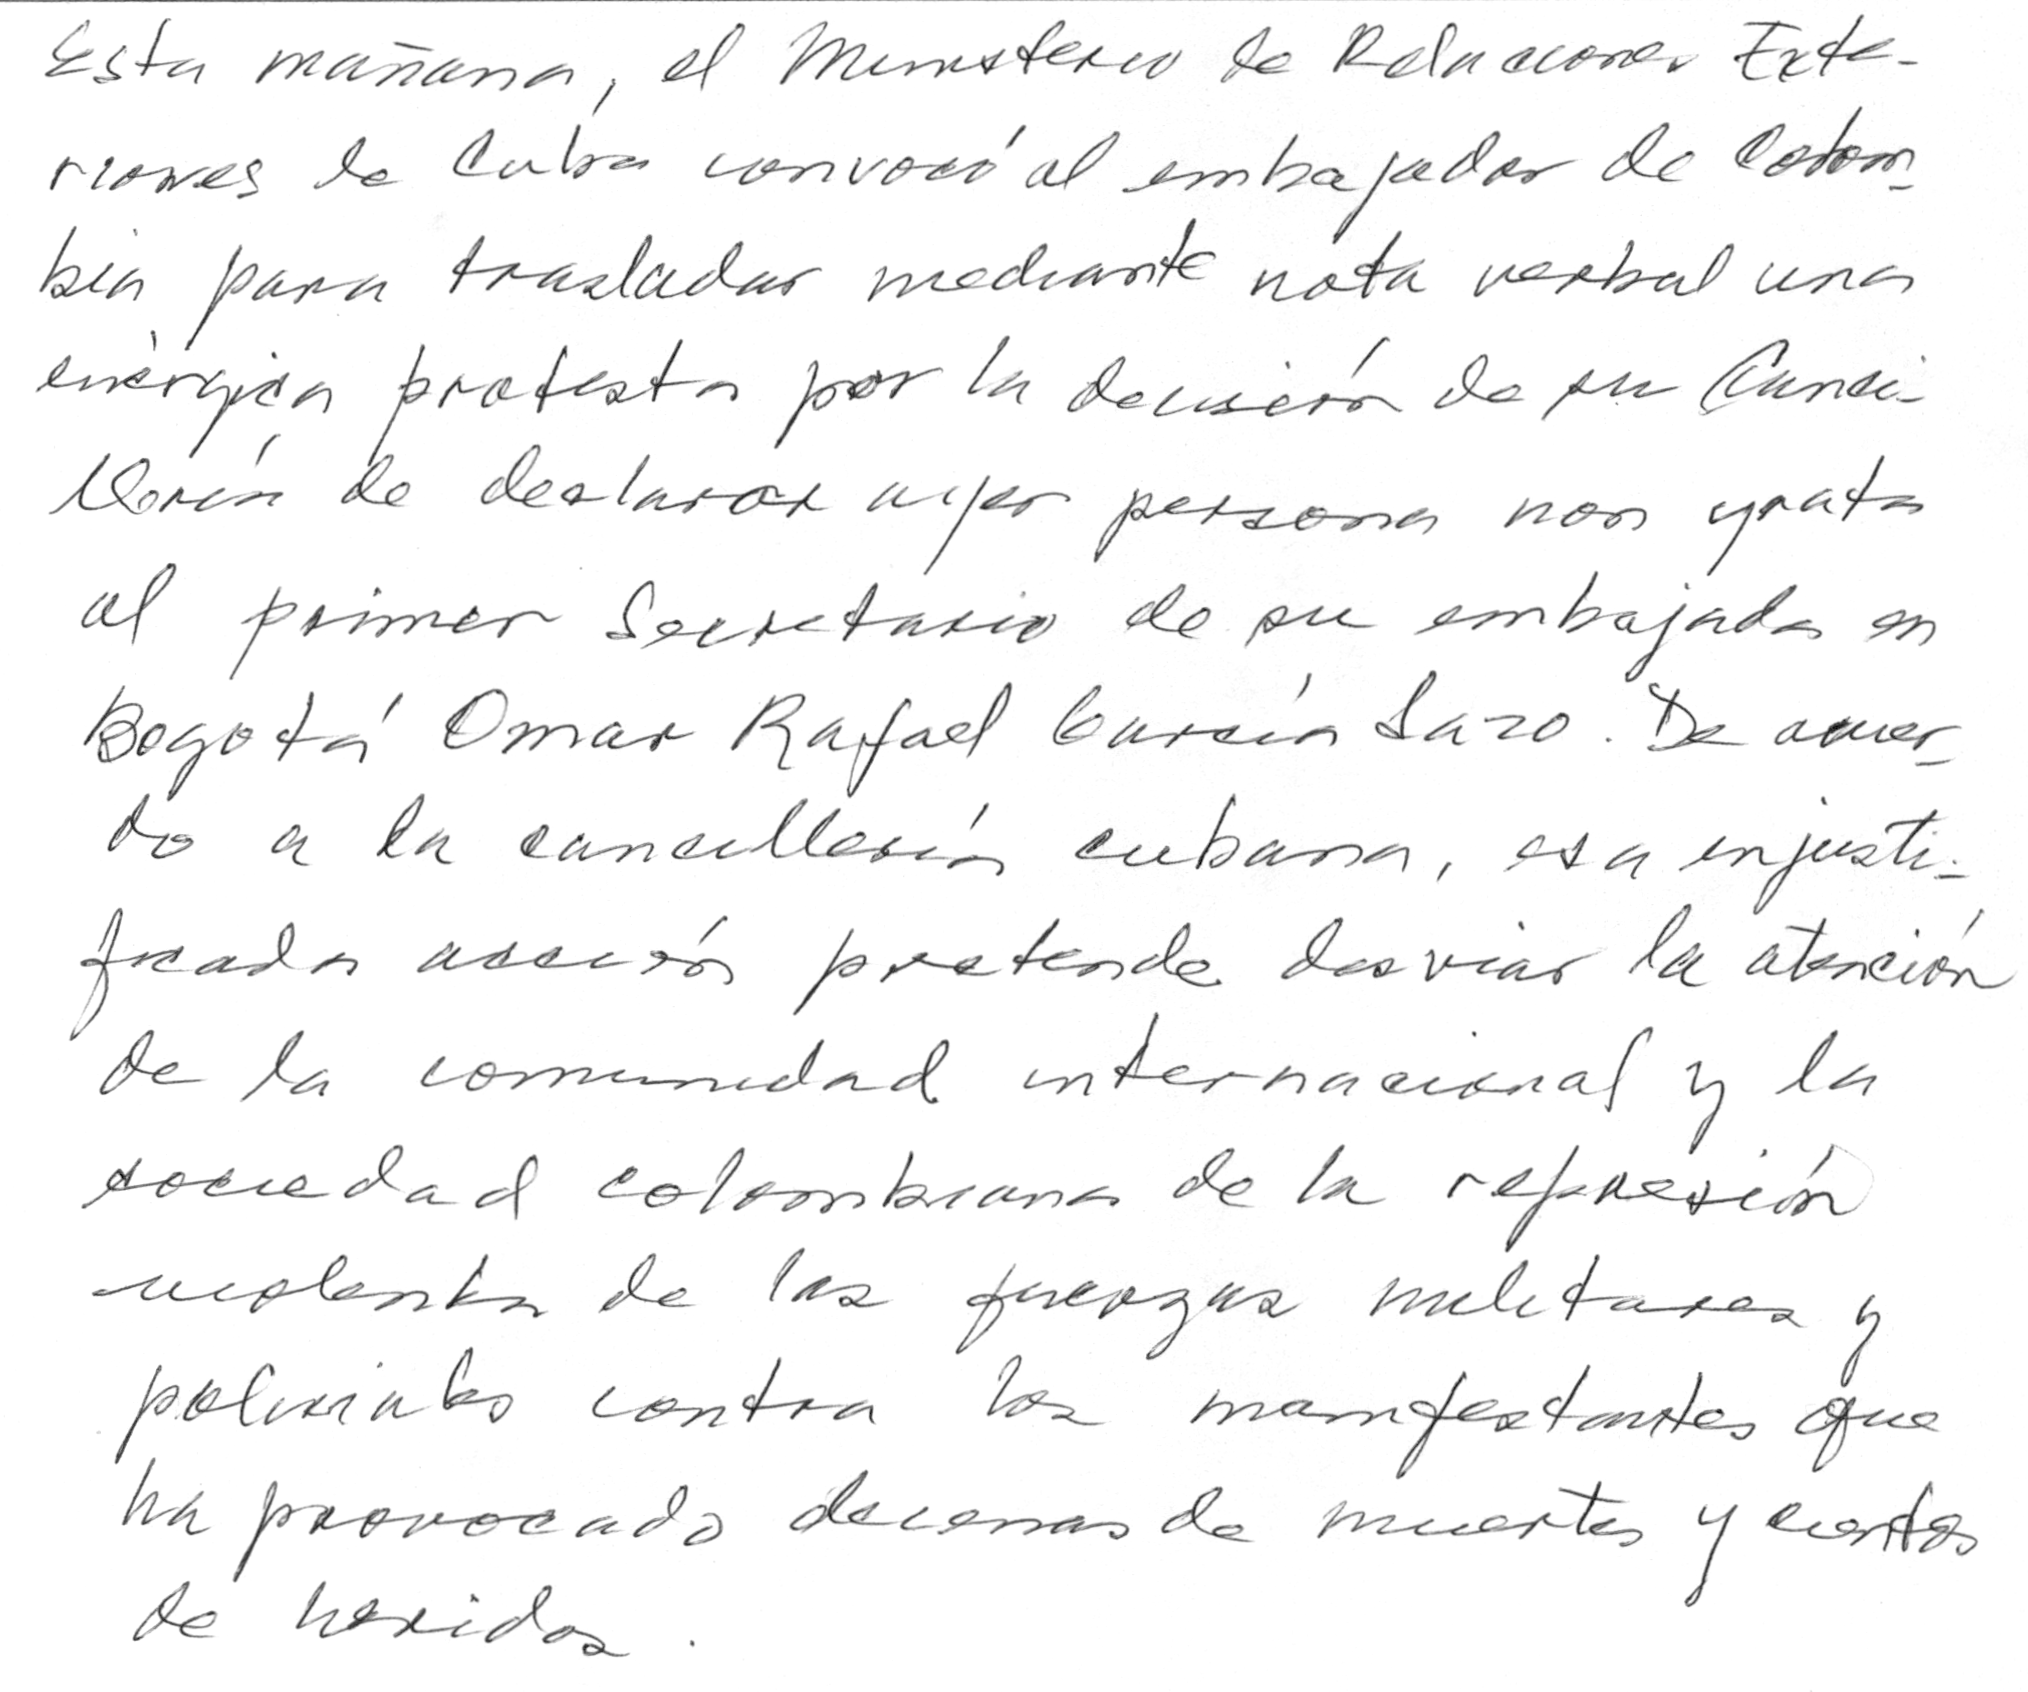 Esta mañana, el Ministerio de Relaciones Exte-
riores de Cuba convocó al embajador de Colom-
bia para trasladar mediante nota verbal una
enérgica protesta por la decisión de su Canci-
llería de declarar ayer persona non grata
al primer Secretario de su embajada en
Bogotá Omar Rafael García Lazo. De acuer-
do a la cancillería cubana, esa injusti-
ficada acción pretende desviar la atención
de la comunidad internacional y la
sociedad colombiana de la represión
violenta de las fuerzas militares y
policiales contra los manifestantes que
ha provocado decenas de muertes y cientos
de heridos.